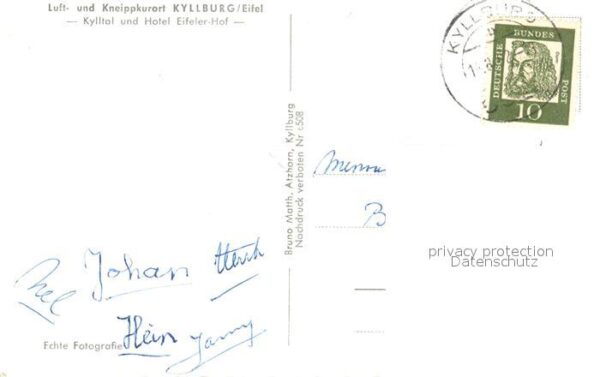 Luft- und Kneippkurort KYLLBURG/Eifel
— Kylltal und Hotel Eifeler-Hof —
KYLLBURG
DEUTSCHE BUNDES POST
10
Bruno Matth. Atzhorn, Kyllburg
Nachdruck verboten Nr 6508
B
privacy protection
Datenschutz
Johan
Hein Janny
Echte Fotografie